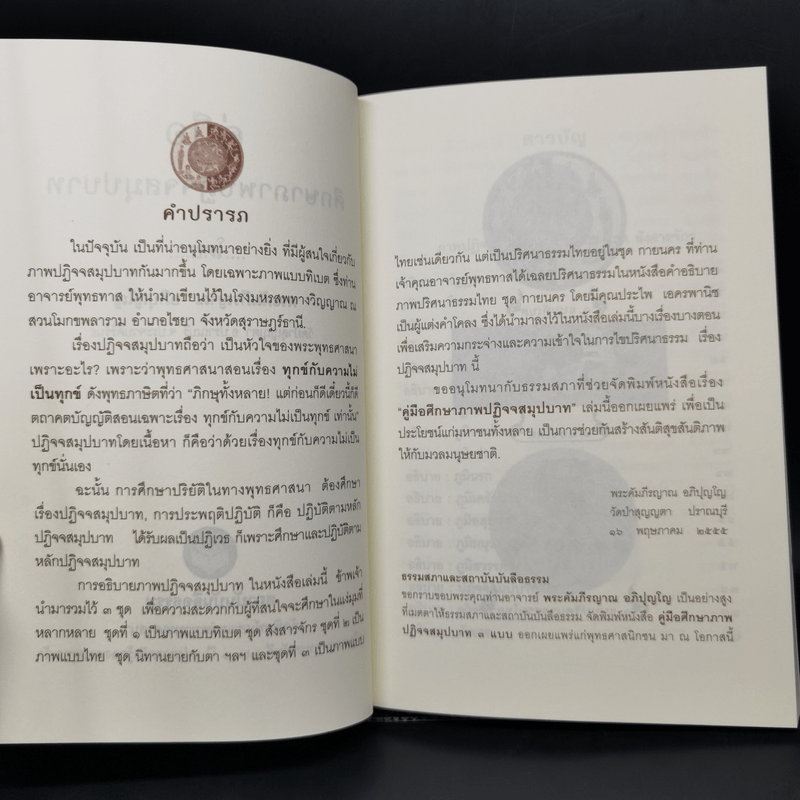 คำปรารภ
ในปัจจุบัน เป็นที่น่าอนุโมทนาอย่างยิ่ง ที่มีผู้สนใจเกี่ยวกับ
ภาพปฏิจจสมุปบาทกันมากขึ้น โดยเฉพาะภาพแบบทิเบต ซึ่งท่าน
อาจารย์พุทธทาส ให้นำมาเขียนไว้ในโรงมหรสพทางวิญญาณ ณ
สวนโมกขพลาราม อำเภอไชยา จังหวัดสุราษฎร์ธานี.
เรื่องปฏิจจสมุปบาทถือว่า เป็นหัวใจของพระพุทธศาสนา
เพราะอะไร? เพราะว่าพุทธศาสนาสอนเรื่อง ทุกข์กับความไม่
เป็นทุกข์ ดังพุทธภาษิตที่ว่า "ภิกษุทั้งหลาย! แต่ก่อนก็ดีเดี๋ยวนี้ก็ดี
ตถาคตบัญญัติสอนเฉพาะเรื่อง ทุกข์กับความไม่เป็นทุกข์ เท่านั้น"
ปฏิจจสมุปบาทโดยเนื้อหา ก็คือว่าด้วยเรื่องทุกข์กับความไม่เป็น
ทุกข์นั่นเอง
ฉะนั้น การศึกษาปริยัติในทางพุทธศาสนา ต้องศึกษา
เรื่องปฏิจจสมุปบาท, การประพฤติปฏิบัติ ก็คือ ปฏิบัติตามหลัก
ปฏิจจสมุปบาท ได้รับผลเป็นปฏิเวธ ก็เพราะศึกษาและปฏิบัติตาม
หลักปฏิจจสมุปบาท
การอธิบายภาพปฏิจจสมุปบาท ในหนังสือเล่มนี้ ข้าพเจ้า
นำมารวมไว้ ๓ ชุด เพื่อความสะดวกกับผู้ที่สนใจจะศึกษาในแง่มุมที่
หลากหลาย ชุดที่ ๑ เป็นภาพแบบทิเบต ชุด สังสารจักร ชุดที่ ๒ เป็น
ภาพแบบไทย ชุด นิทานยายกับตา ฯลฯ และชุดที่ ๓ เป็นภาพแบบ
ไทยเช่นเดียวกัน แต่เป็นปริศนาธรรมไทยอยู่ในชุด กายนคร ที่ท่าน
เจ้าคุณอาจารย์พุทธทาสได้เฉลยปริศนาธรรมในหนังสือคำอธิบาย
ภาพปริศนาธรรมไทย ชุด กายนคร โดยมีคุณประไพ เอครพานิช
เป็นผู้แต่งคำโคลง ซึ่งได้นำมาลงไว้ในหนังสือเล่มนี้บางเรื่องบางตอน
เพื่อเสริมความกระจ่างและความเข้าใจในการไขปริศนาธรรม เรื่อง
ปฏิจจสมุปบาท นี้
ขออนุโมทนากับธรรมสภาที่ช่วยจัดพิมพ์หนังสือเรื่อง
"คู่มือศึกษาภาพปฏิจจสมุปบาท" เล่มนี้ออกเผยแพร่ เพื่อเป็น
ประโยชน์แก่มหาชนทั้งหลาย เป็นการช่วยกันสร้างสันติสุขสันติภาพ
ให้กับมวลมนุษยชาติ.
พระคัมภีรญาณ อภิปุญฺโญ
วัดป่าสุญญตา ปราณบุรี
๑๖ พฤษภาคม ๒๕๕๕
ธรรมสภาและสถาบันบันลือธรรม
ขอกราบขอบพระคุณท่านอาจารย์ พระคัมภีรญาณ อภิปุญฺโญ เป็นอย่างสูง
ที่เมตตาให้ธรรมสภาและสถาบันบันลือธรรม จัดพิมพ์หนังสือ คู่มือศึกษาภาพ
ปฏิจจสมุปบาท ๓ แบบ ออกเผยแพร่แก่พุทธศาสนิกชน มา ณ โอกาสนี้